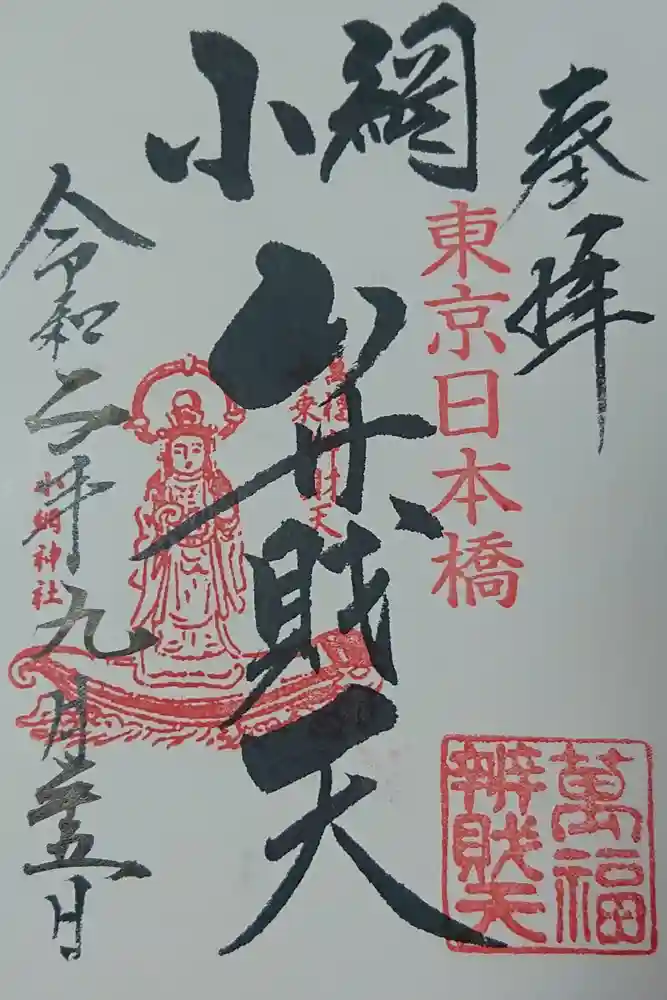 奉拝
東京日本橋
小網
弁財天
令和二年九月廿五日
小網神社
萬福
辨財天